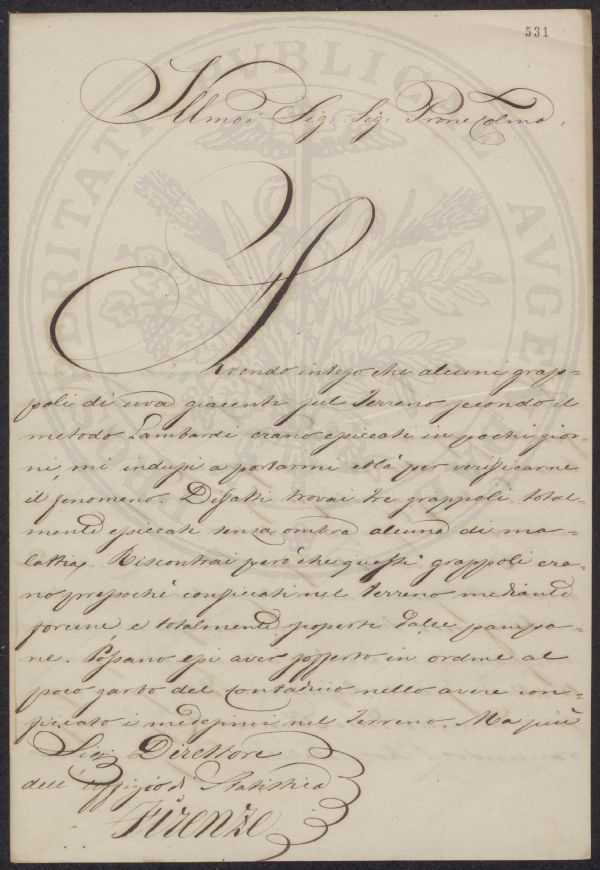 531
Illmo. Sig. Sig. Prone Colmo.
Avendo inteso che alcuni grap=
poli di uva giacenti sul Terreno secondo il
metodo Lambardi erano essiccati in pochi gior=
ni, mi indussi a portarmi colà per verificarne
il fenomeno. Difatti trovai tre grappoli total=
mente essiccati senza ombra alcuna di ma=
lattia. Riscontrai però che questi grappoli era=
no pressochè conficcati nel Terreno mediante
forcine e totalmente scoperti dalle pampa=
ne. Possano essi aver sofferto in ordine al
poco garbo del contadino nello avere con=
ficcato i medesimi nel Terreno. Ma più
Sig. Direttore
dell' Uffizio di Statistica
Firenze
PUBLICAE
AVGE
VERITATI
PRO